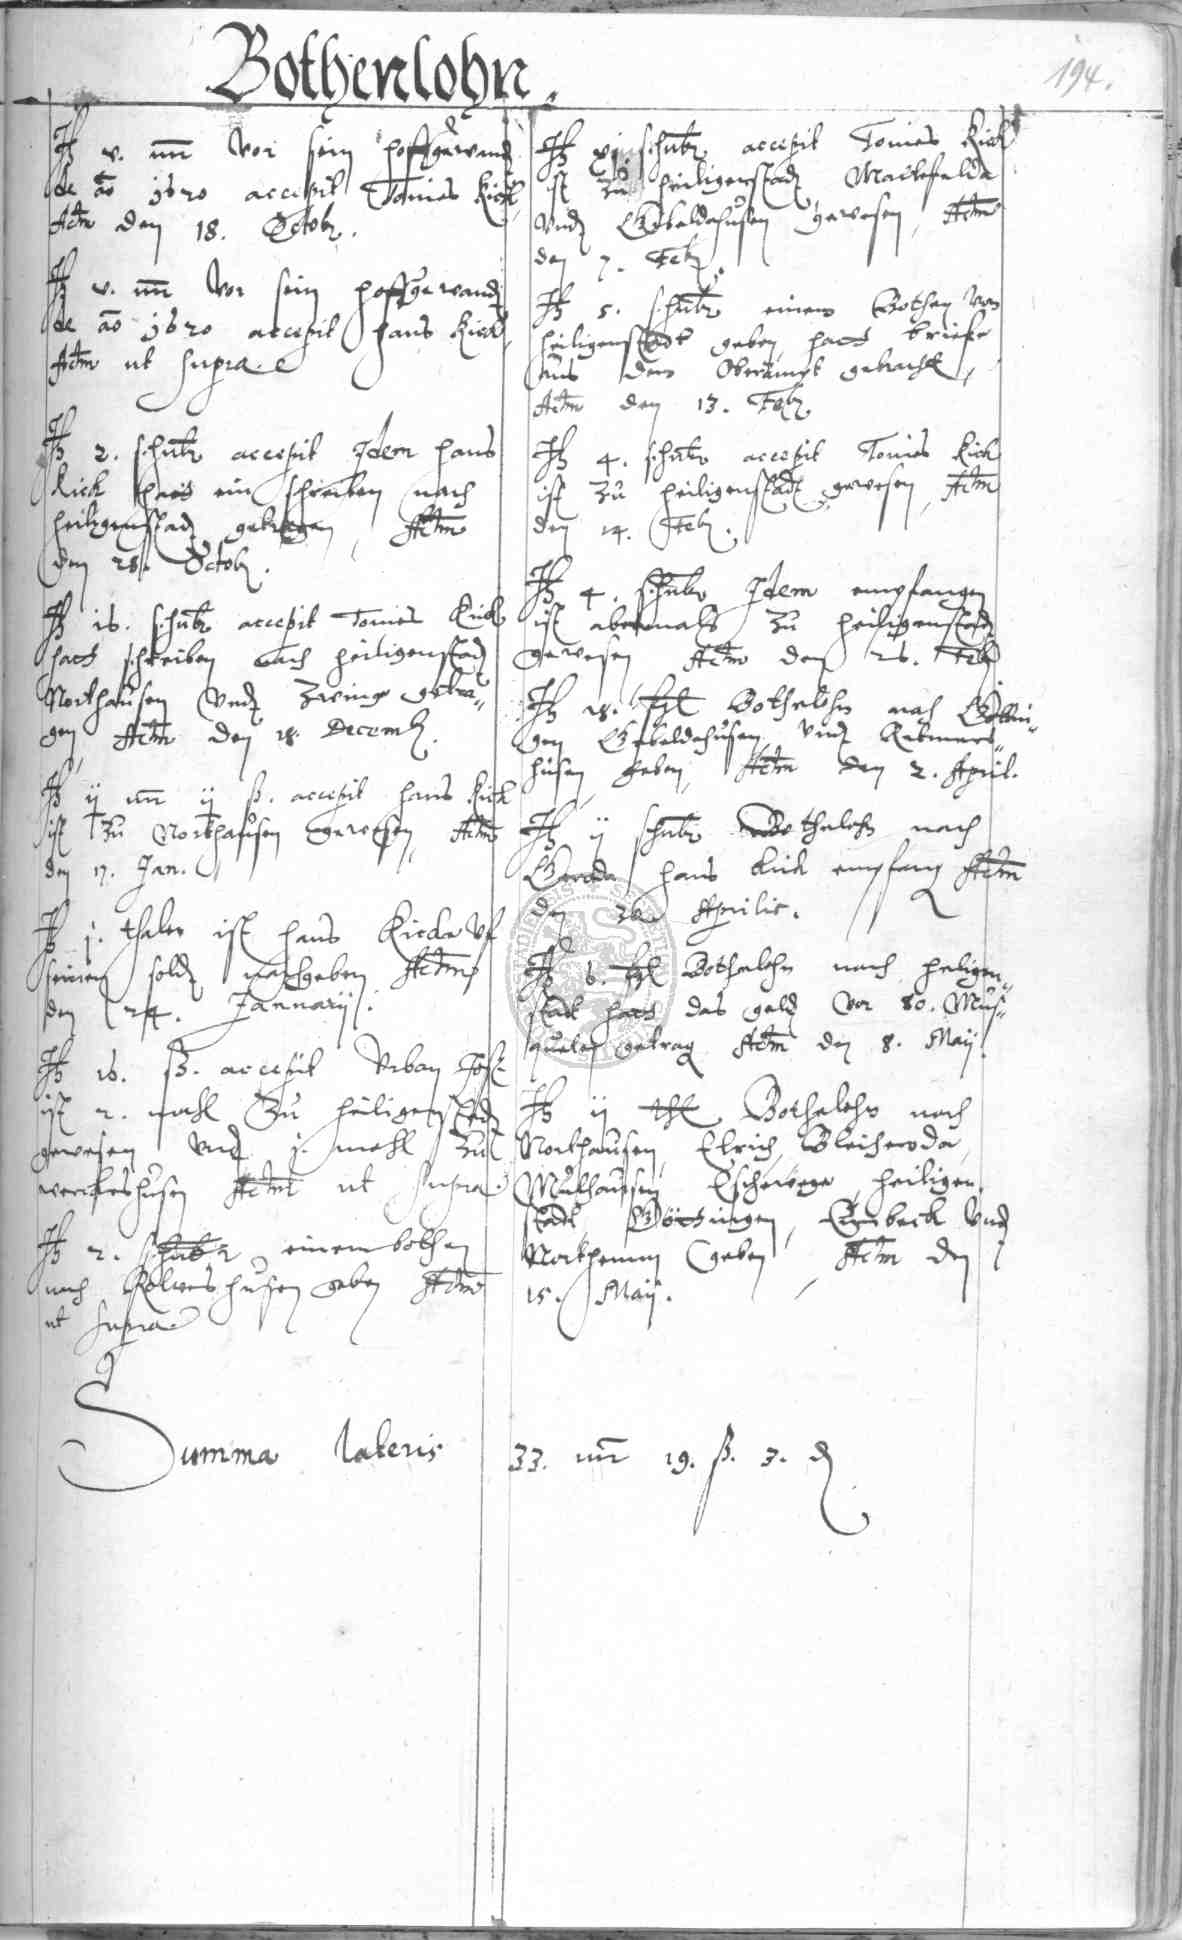 Bothenlohn.
194.
It v. mr vor sein hoffgewandt
de ao 1620 accepit Tonies Rick
Actm den 18. Octob.
It v. mr vor sein hoffgewandt
de ao 1620 accepit hans Rick
Actm ut supra.
It 2. schnbr accepit Idem hans
Rick hatt ein schreiben nach
heiligenstadt getragen, Actm
den 28. Octob.
It 16. schnbr accepit Tonies Rick
hatt schreiben nach heiligenstadt
Northausen Undt getra„
gen, Actm den 18. Decemb.
It ij mr ij ß. accepit hans Rick
ist Zu Northausen gewesen, Actm
den 17. Jan.
It j. thaler ist hans Ricke Uf
seinem soldt geben Actm
den 24. Januarij.
It 16. ß. accepit Urban
ist 2. mahl Zu heiligenstadt
gewesen Undt j. mahl Zu
Actm ut supra
It 2. schnbr einem bothen
nach geben Actm
ut supra
It schnbr accepit Tonies Rick
ist Zu heiligenstadt,
Undt Gebeldehusen gewesen, Actm
den 7. Feb.
It 5. schnbr einem Bothen von
heiligenstadt geben, hatt brieffe
aus dem Oberampt gebracht,
Actm den 13. Feb.
It 4. schnbr accepit Tonies Rick
ist Zu heiligenstadt gewesen, Actm
den 14. Feb.
It 4. schnbr Idem empfangen
ist abermals Zu heiligenstadt
gewesen Actm den 26. Feb
It 18. Bothelohn nach Gottin„
gen Gebeldehusen Undt
husen geben, Actm den 2. April.
It ij schnbr Bothelohn nach
Geroda hans Rick empfang Actm
den Aprilis.
It 6. Bothelohn nach heiligen„
stadt hatt das geldt vor 80. Mus„
queten getrag Actm den 8. Maij.
It ij thl Bothelohn nach
Northausen, Elrich, Bleicheroda,
Mulhausen Eschewege, heiligen
stadt Göttingen, Einbeck Undt
Northeimm geben, Actm den
15. Maij.
Summa lateris 33. mr 19. ß. 3. d